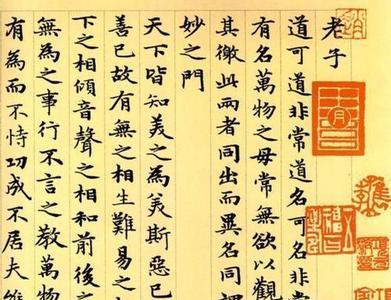 老子
道可道非常道名可名非常
有名萬物之母常無欲以觀
其徼此兩者同出而異名同謂
妙之門
天下皆知美之為美斯惡已
善已故有無之相生難易之
下之相傾音聲之相和前後之
無為之事行不言之教萬物
有為而不恃功成不居夫維